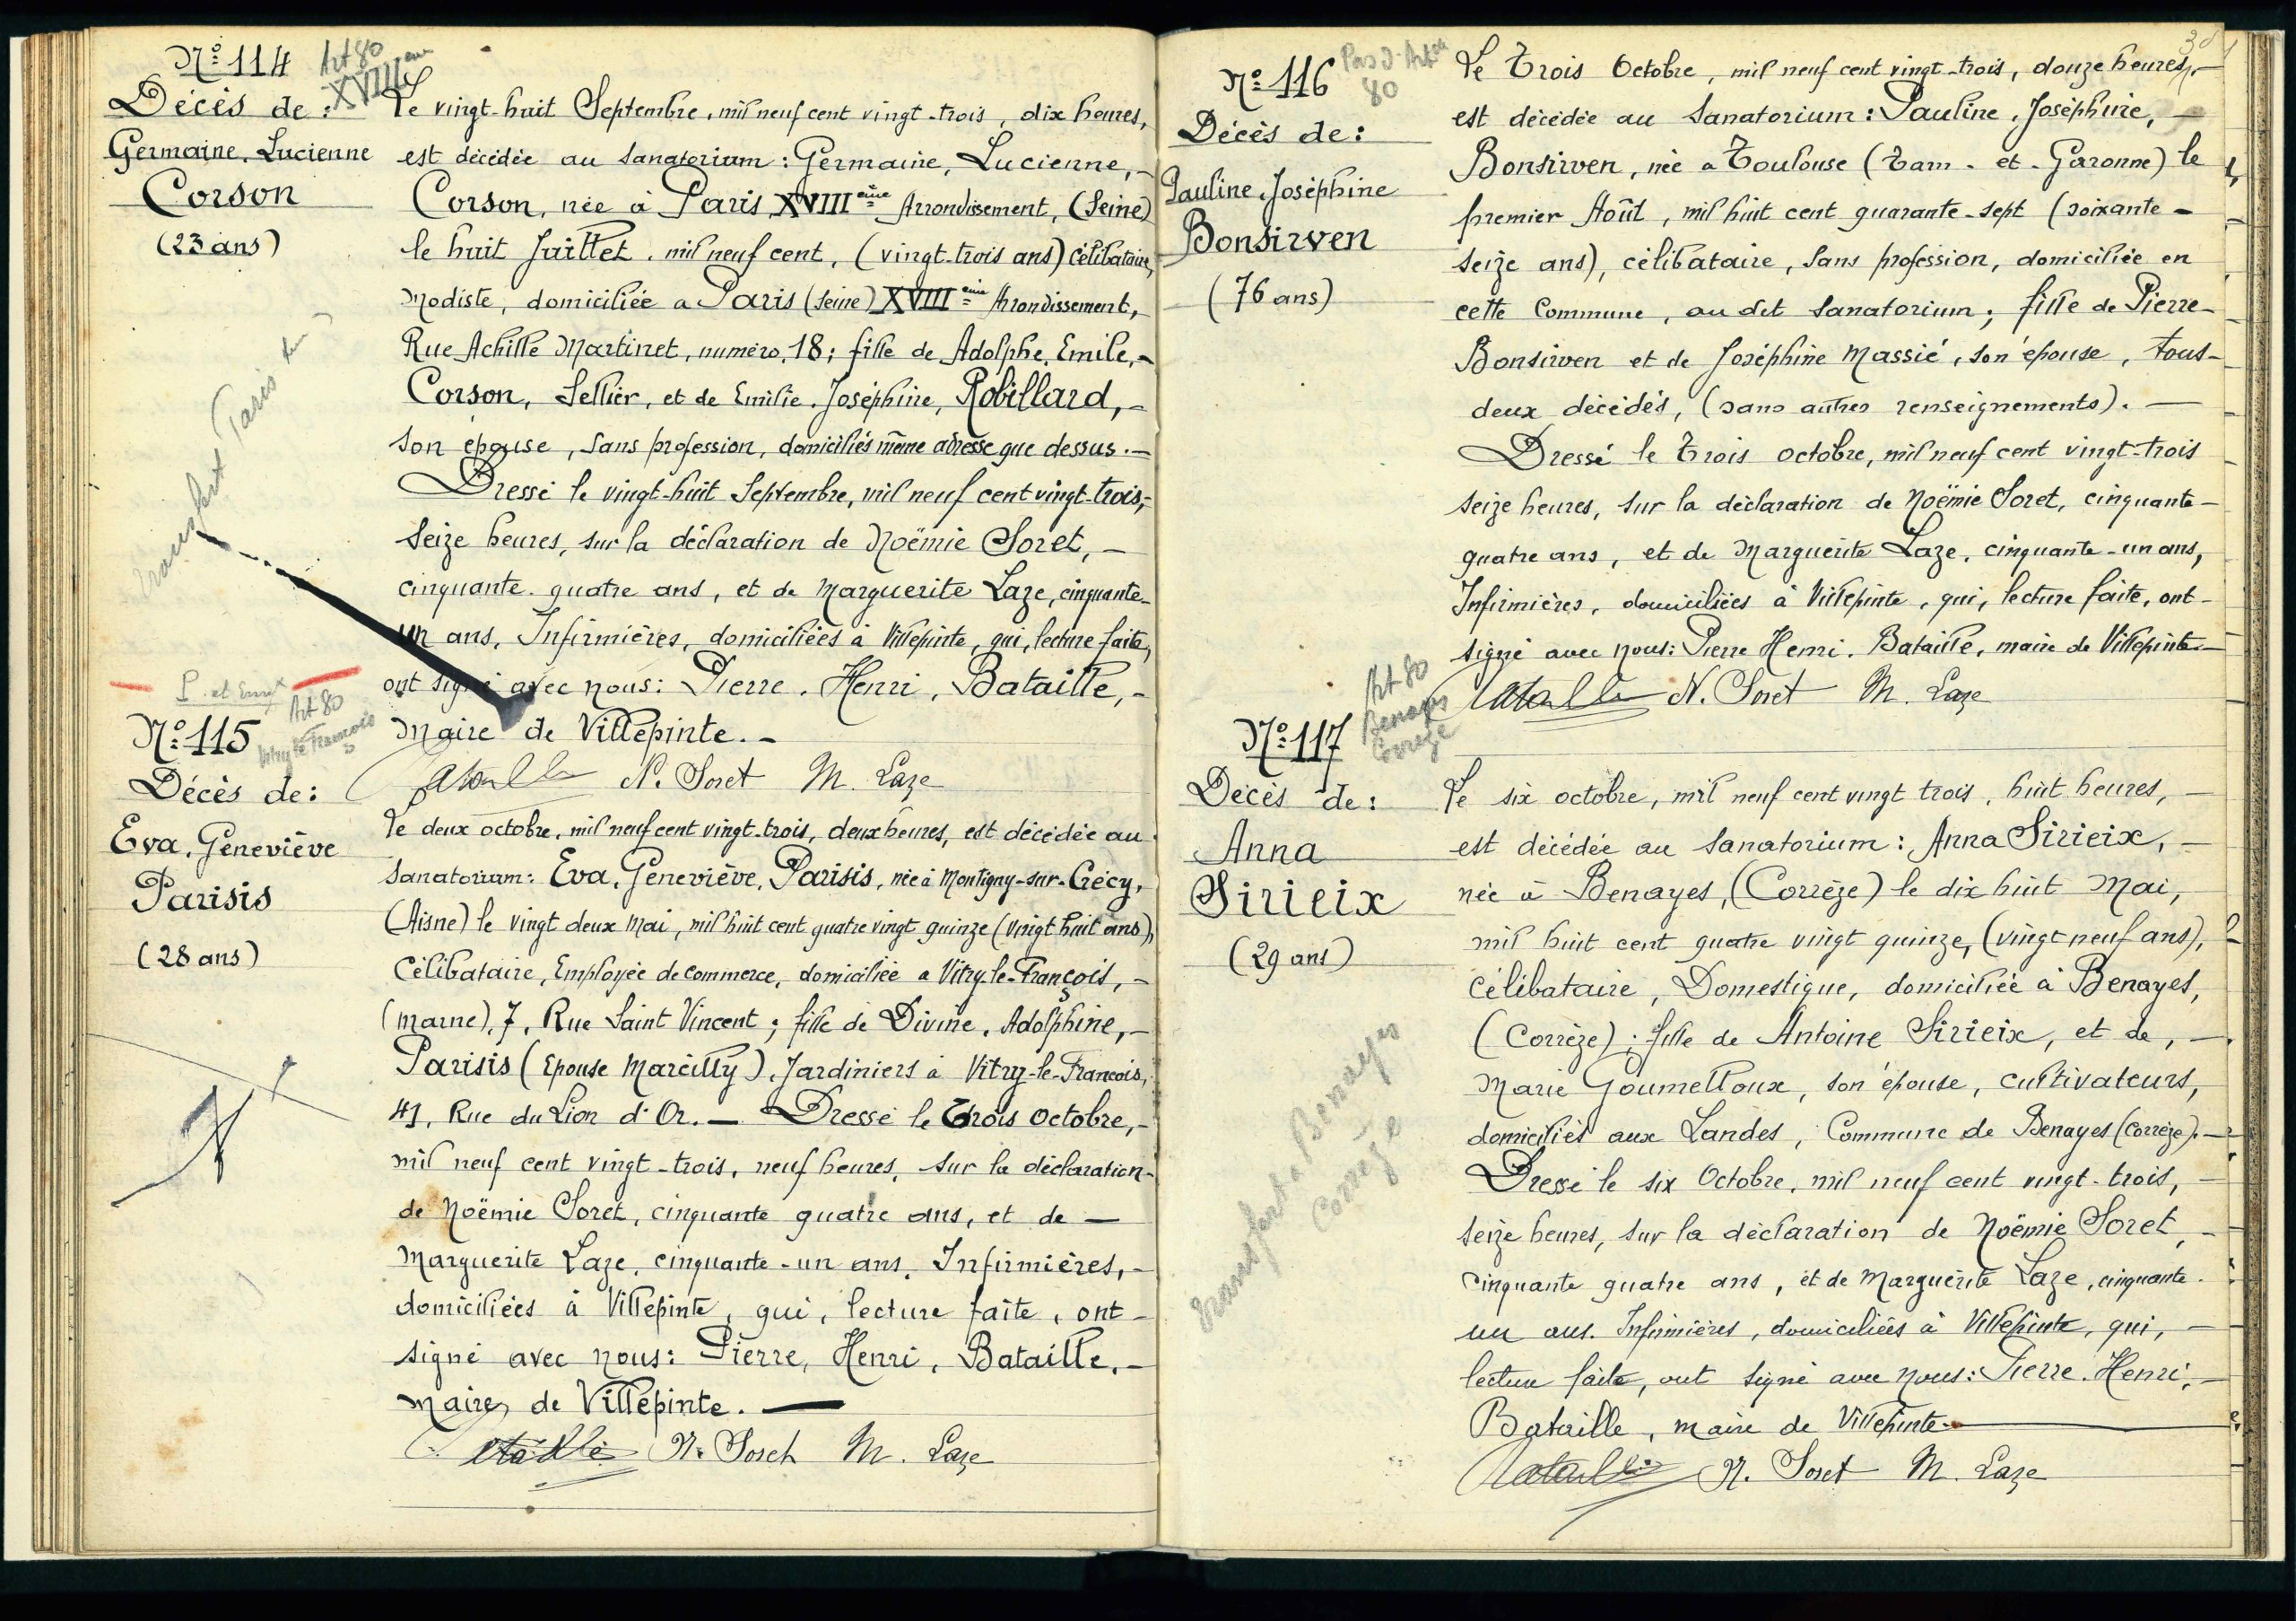 Nº 114
Art 80
XVIIIeme
Décès de :
Germaine, Lucienne
Corson
(23 ans)
Le vingt-huit Septembre, mil neuf cent vingt-trois, dix heures,
est décédée au Sanatorium : Germaine, Lucienne, -
Corson, née à Paris XVIIIème Arrondissement, (Seine)
le huit Juillet, mil neuf cent, (vingt-trois ans) Célibataire,
Modiste, domiciliée a Paris (Seine) XVIIIème Arrondissement, -
Rue Achille Martinet, numéro, 18 ; fille de Adolphe, Emile, -
Corson, Sellier, et de Emilie. Joséphine, Robillard, -
son épouse, sans profession, domiciliés même adresse que dessus. -
Dressé le vingt-huit Septembre, mil neuf cent vingt-trois, -
seize heures, sur la déclaration de Noëmie Soret, -
cinquante. quatre ans, et de Marguerite Laze, cinquante-
un ans, Infirmières, domiciliées à Villepinte, qui, lecture faite,
ont signé avec nous : Pierre. Henri, Bataille, -
Maire de Villepinte. -
Bataille N. Soret M. Laze
transfert Paris
Art 80
Vitry le François
Nº 115
Décès de :
Eva, Geneviève
Parisis
(28 ans)
Le deux octobre, mil neuf cent vingt-trois, deux heures, est décédée au
Sanatorium : Eva, Geneviève, Parisis, née à Montigny-sur-Crécy,
(Aisne) le vingt deux Mai, mil huit cent quatre vingt quinze (vingt huit ans),
Célibataire, Employée de commerce, domiciliée a Vitry-le-François, -
(Marne), 7, Rue Saint Vincent ; fille de Divine, Adolphine, -
Parisis (Epouse Marcilly), Jardiniers à Vitry-le-Francois,
41, Rue du Lion d'Or. — Dressé le Trois Octobre, -
mil neuf cent vingt-trois, neuf heures, sur la déclaration -
de Noëmie Soret, cinquante quatre ans, et de —
Marguerite Laze, cinquante-un ans, Infirmières, -
domiciliées à Villepinte, qui, lecture faite, ont -
signé avec nous : Pierre, Henri, Bataille, -
maire, de Villepinte. —
Bataille N. Soret M. Laze
Nº 116
Pas d'Art
80
Décès de :
Pauline, Joséphine
Bonsirven
(76 ans)
Le Trois Octobre, mil neuf cent vingt-trois, douze heures, -
est décédée au Sanatorium : Pauline, Joséphine, -
Bonsirven, née a Toulouse (Tarn - et - Garonne) le
premier Août, mil huit cent quarante-sept (soixante -
seize ans), célibataire, sans profession, domiciliée en
cette Commune, au dit Sanatorium ; fille de Pierre -
Bonsirven et de Joséphine Massié, son épouse, tous -
deux décédés, (sans autres renseignements). —
Dressé le Trois octobre, mil neuf cent vingt-trois
seize heures, sur la déclaration de Noëmie Soret, cinquante -
quatre ans, et de Marguerite Laze, cinquante-un ans,
Infirmières, domiciliées à Villepinte, qui, lecture faite, ont -
signé avec nous : Pierre Henri. Bataille, maire de Villepinte. -
Bataille N. Soret M. Laze
Art 80
Benayes
Corrèze
Nº 117
Décès de :
Anna
Sirieix
(29 ans)
Le six octobre, mil neuf cent vingt trois, huit heures, -
est décédée au Sanatorium : Anna Sirieix, -
née à Benayes, (Corrèze) le dix huit Mai,
mil huit cent quatre vingt quinze, (vingt neuf ans),
Célibataire, Domestique, domiciliée à Benayes,
(Corrèze) ; fille de Antoine Sirieix, et de, -
Marie Goumelloux, son épouse, cultivateurs,
domiciliés aux Landes, Commune de Benayes (Corrèze). -
Dressé le six Octobre, mil neuf cent vingt-trois, -
seize heures, sur la déclaration de Noëmie Soret, -
cinquante quatre ans, et de Marguerite Laze, cinquante.
un ans. Infirmières, domiciliées à Villepinte, qui, -
lecture faite, ont signé avec nous : Pierre. Henri, -
Bataille, maire de Villepinte. —
Bataille N. Soret M. Laze
transfert a Benayes
Corrèze